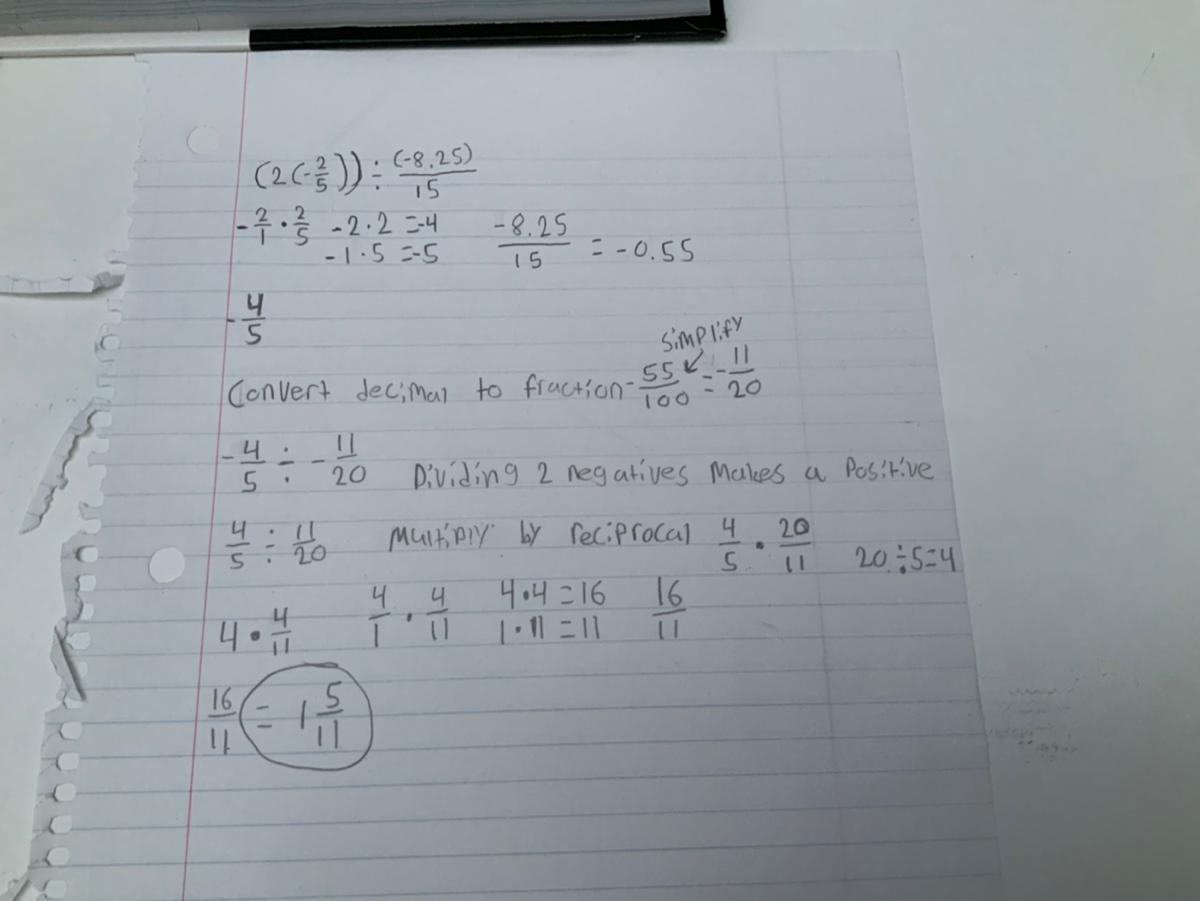 (2(-2/5)) ÷ (-8.25)/15
-2/1 · 2/5   -2·2 =-4   -8.25/15 = -0.55
-1·5 =-5
-4/5
Simplify
Convert decimal to fraction -55/100 = -11/20
-4/5 ÷ -11/20   Dividing 2 negatives Makes a Positive
4/5 ÷ 11/20   Multiply by reciprocal 4/5 · 20/11   20÷5=4
4 · 4/11   4/1 · 4/11   4·4=16   16/11
1·11=11
16/11 = 1 5/11